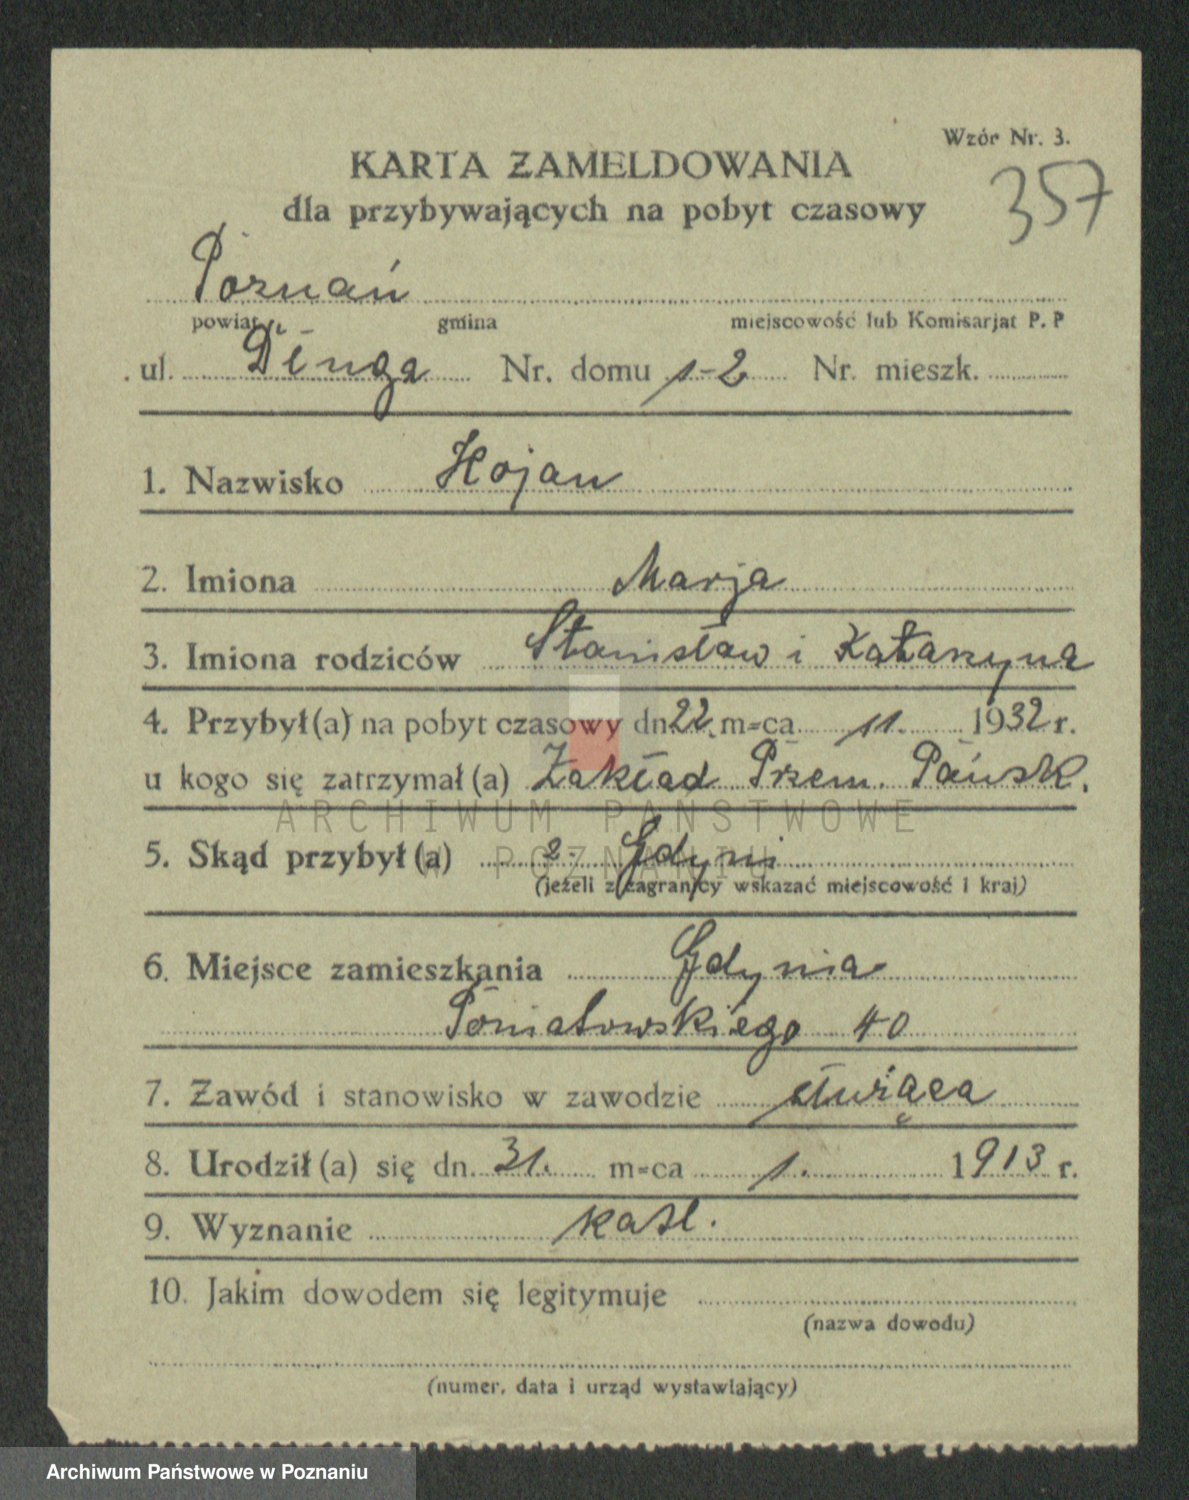 Wzór Nr. 3.
KARTA ZAMELDOWANIA
357
dla przybywających na pobyt czasowy
Poznań
powiat gmina miejscowość lub Komisarjat P. P
ul. Długa Nr. domu 1-2 Nr. mieszk.
1. Nazwisko Hojan
2. Imiona Marja
3. Imiona rodziców Stanisław i Katarzyna
4. Przybył (a) na pobyt czasowy dn. 22. m-ca 11. 1932 r.
u kogo się zatrzymał (a) Zakład Przem. Państ.
ARCHIWUM PAŃSTWOWE
5. Skąd przybył (a) z Gdyni
W POZNANIU
(jeżeli z zagranicy wskazać miejscowość i kraj)
6. Miejsce zamieszkania Gdynia
Poniatowskiego 40
7. Zawód i stanowisko w zawodzie służąca
8. Urodził (a) się dn. 31. m-ca 1. 1913 r.
9. Wyznanie katl.
10. Jakim dowodem się legitymuje
(nazwa dowodu)
(numer, data i urząd wystawiający)
Archiwum Państwowe w Poznaniu